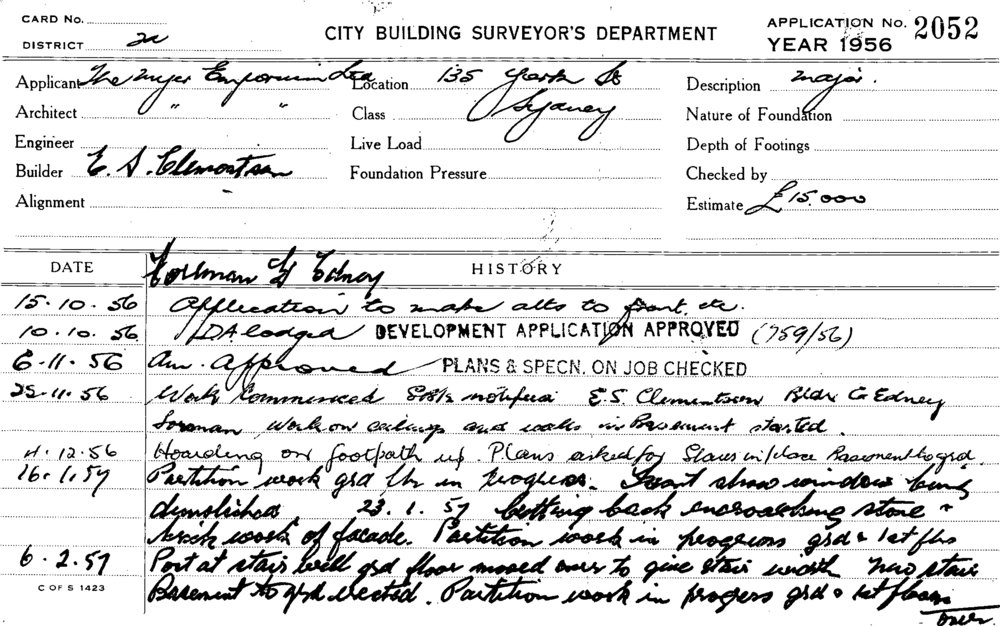 CARD No.
DISTRICT 2a
CITY BUILDING SURVEYOR'S DEPARTMENT
APPLICATION No. 2052
YEAR 1956
Applicant The Myer Emporium Ltd Location 135 York St Description Major.
Architect " " Class Sydney Nature of Foundation
Engineer Live Load Depth of Footings
Builder E. S. Clementson Foundation Pressure Checked by
Alignment Estimate £15.000
DATE Foreman G Edney HISTORY
15.10.56 Application to make alts to front. etc.
10.10.56 DA lodged DEVELOPMENT APPLICATION APPROVED (759/56)
6.11.56 Am. Approved PLANS & SPECN. ON JOB CHECKED
22.11.56 Work Commenced notified E.S. Clementson Bldr G Edney
Forman Work on ceilings and walls in Basement started.
4.12.56 Hoarding on footpath up. Plans asked for Stairs in place Basement to grd.
16.1.57 Partition work grd flr in progress. Front show window being
demolished 23.1.57 Cutting back encroaching stone &
brick work of facade. Partition work in progress grd & 1st flrs
6.2.57 Post at stair well grd floor moved over to give stair width New stair
Basement to grd erected. Partition work in progress grd & 1st floors
Over.
C OF S 1423